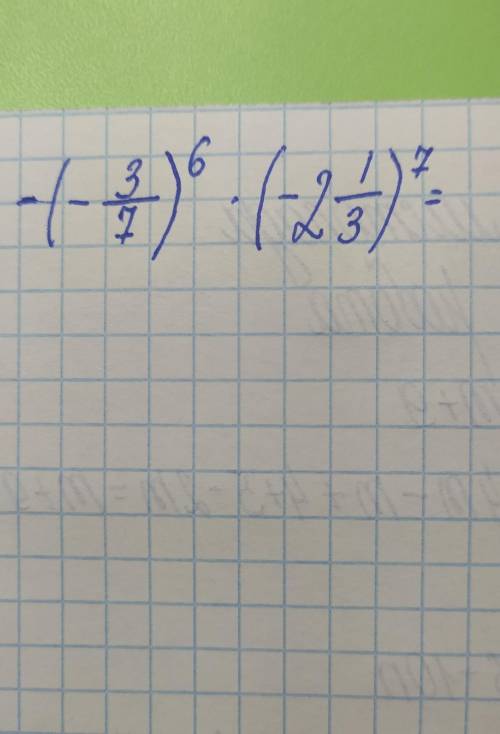 -(-3/7)^6 · (-2 1/3)^7 =